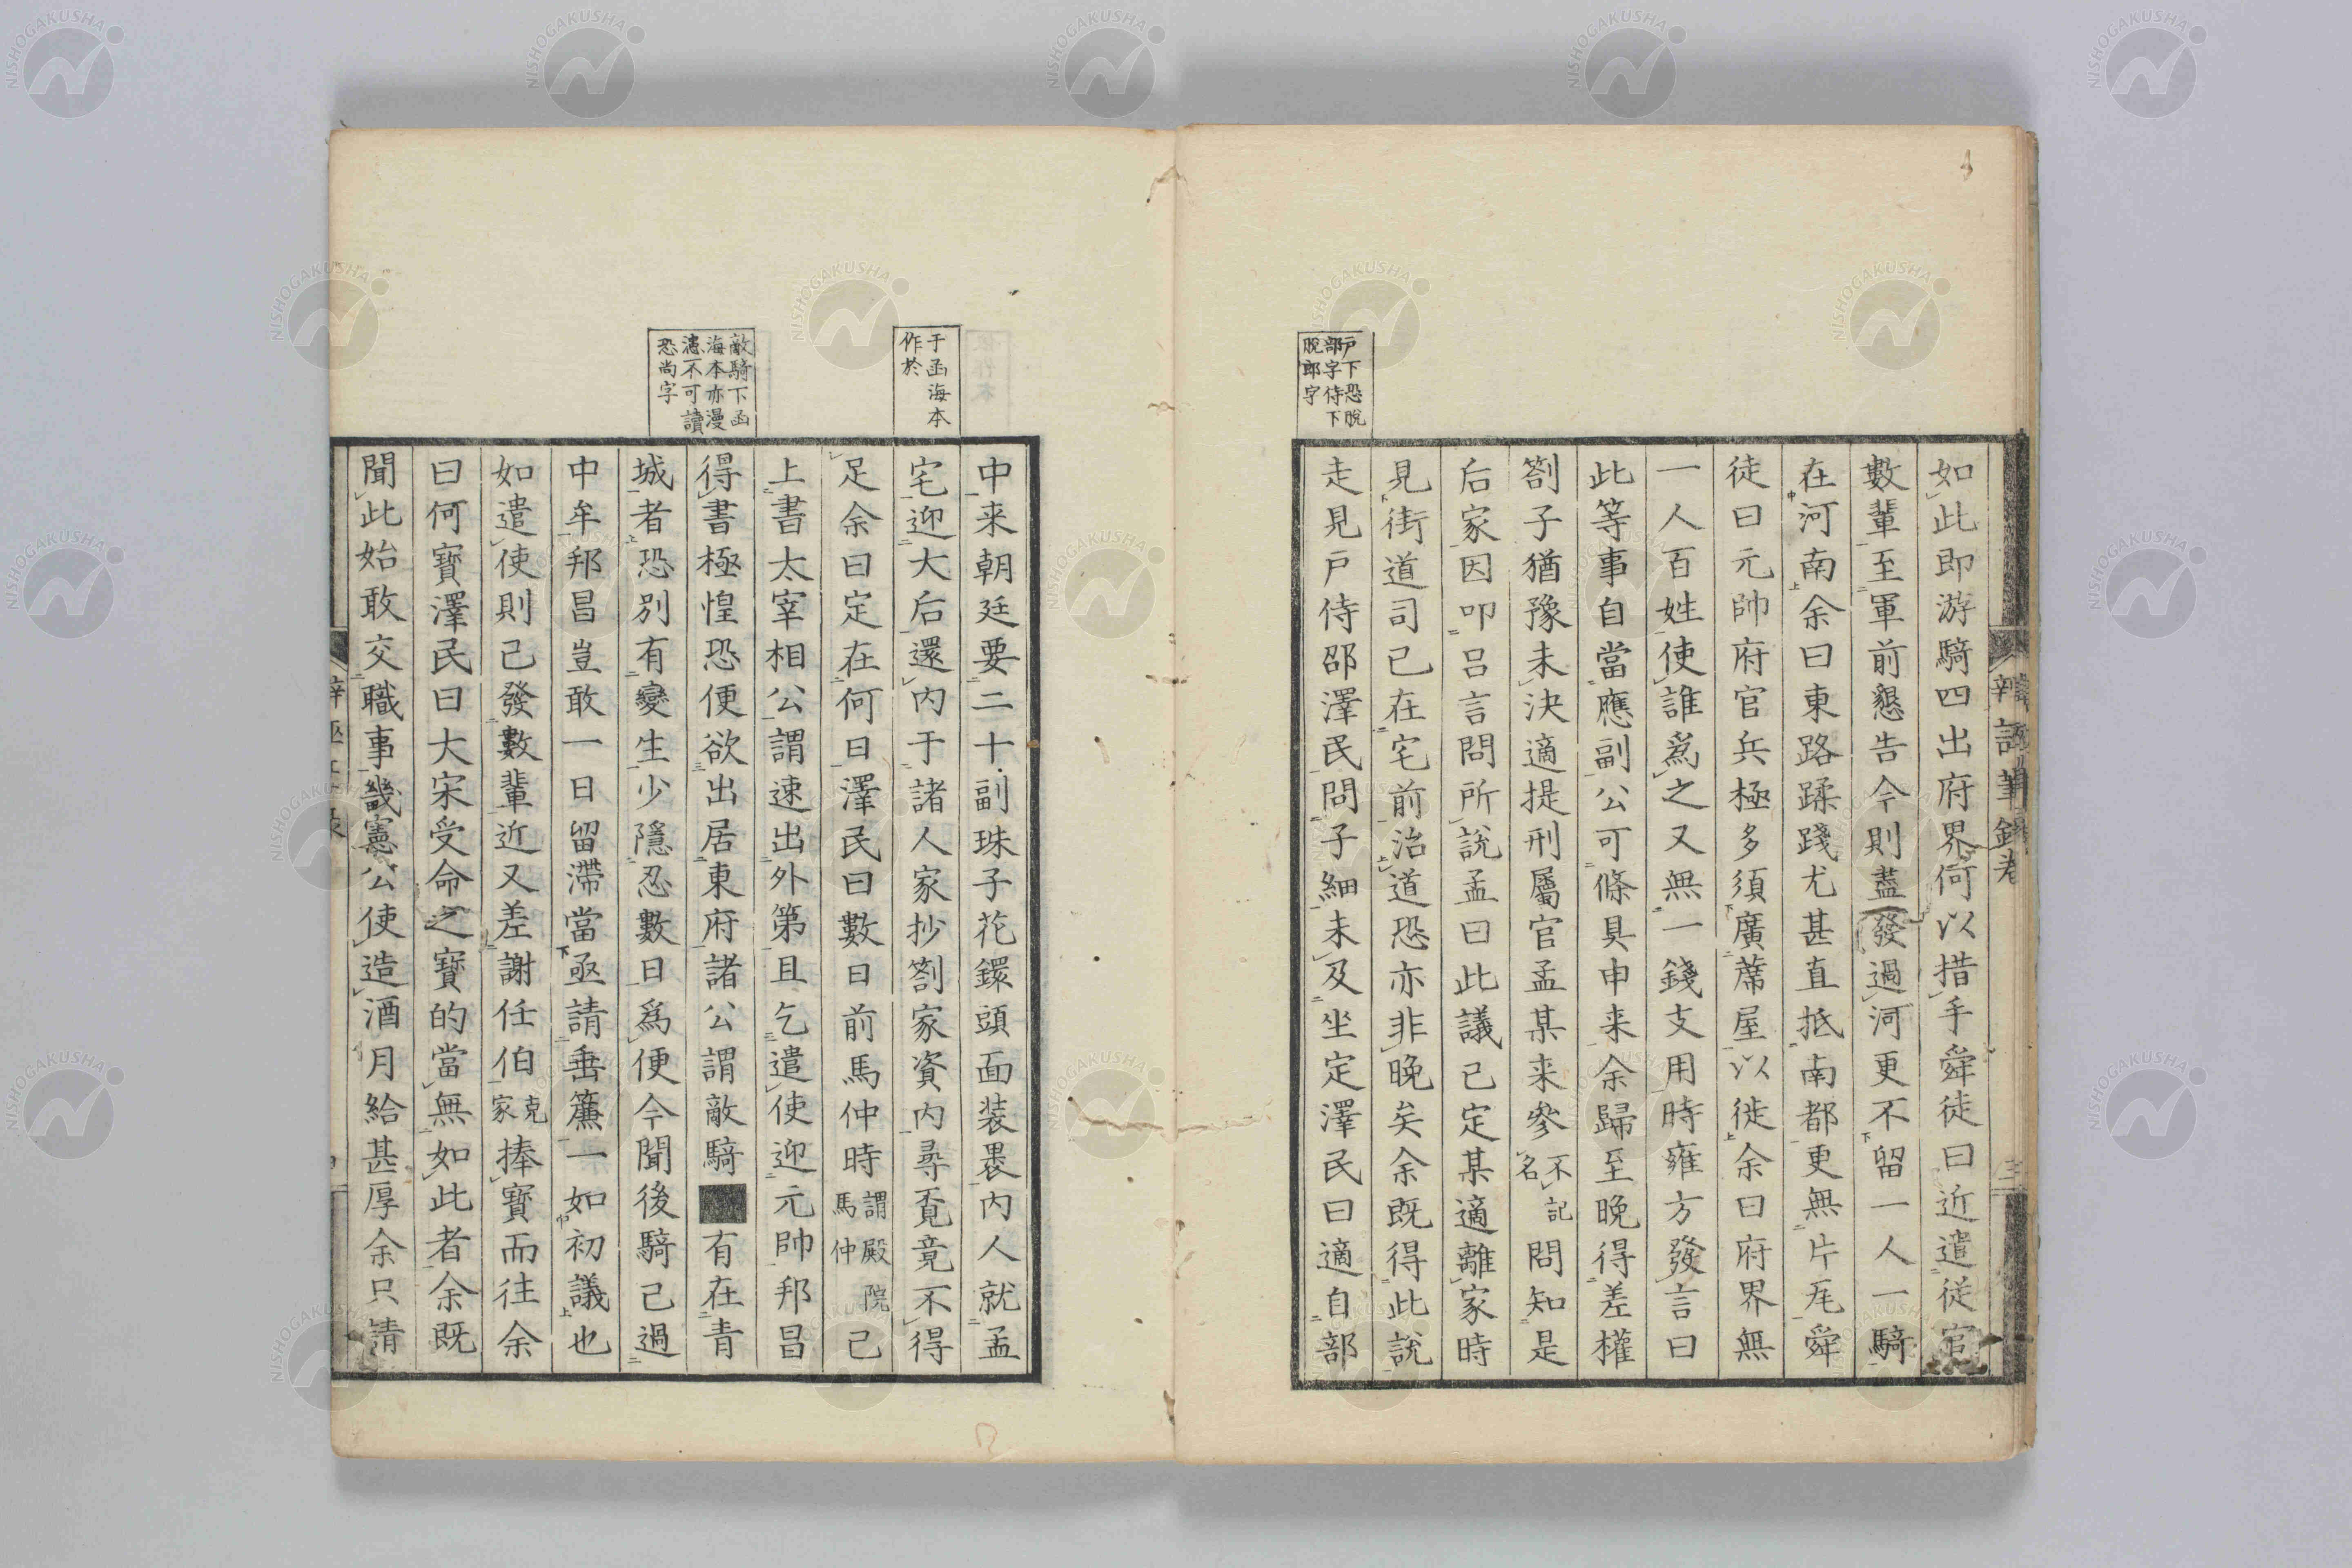 戶下恐脫
部字侍下
脫郎字
如此即游騎四出府界何以措手舜徒曰近遣從官
數輩至軍前懇告今則盡發過河更不留一人一騎
在河南余曰東路蹂踐尤甚直抵南都更無片瓦舜
徒曰元帥府官兵極多須廣蓆屋以徙余曰府界無
一人百姓使誰爲之又無一錢支用時雍方發言曰
此等事自當應副公可條具申来余歸至晚得差權
劄子猶豫未決適提刑屬官孟某来參不記名問知是
后家因叩呂言問所說孟曰此議已定某適離家時
見街道司已在宅前治道恐亦非晚矣余既得此說
走見戶侍邵澤民問子細未及坐定澤民曰適自部
于函海本
作於
敵騎下函
海本亦漫
漶不可讀
恐尚字
中来朝廷要二十副珠子花鐶頭面装褁内人就孟
宅迎大后還内于諸人家抄劄家資内尋覔竟不得
足余曰定在何日澤民曰數日前馬仲時謂殿院馬仲已
上書太宰相公謂速出外第且乞遣使迎元帥邦昌
得書極惶恐便欲出居東府諸公謂敵騎■有在青
城者恐別有變生少隱忍數日爲便今聞後騎已過
中牟邦昌豈敢一日留滯當亟請垂簾一如初議也
如遣使則已發數輩近又差謝任伯克家捧寶而往余
曰何寶澤民曰大宋受命之寶的當無如此者余既
聞此始敢交職事畿憲公使造酒月給甚厚余只請